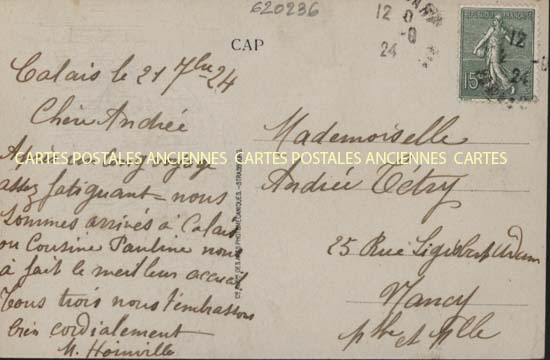 620236
12
24
CAP
REPUBLIQUE FRANÇAISE
15
12
24
Calais le 21 7bre 24
Chère Andrée
Après
assez fatiguant nous
sommes arrivés à Calais
ou Cousine Pauline nous
à fait le meilleur accueil
Tous trois nous t'embrassons
bien cordialement
M. Hoinville
Mademoiselle
Andrée Tétry
25 Rue
Nancy
Mthe et Mlle
CARTES POSTALES ANCIENNES CARTES POSTALES ANCIENNES CARTES